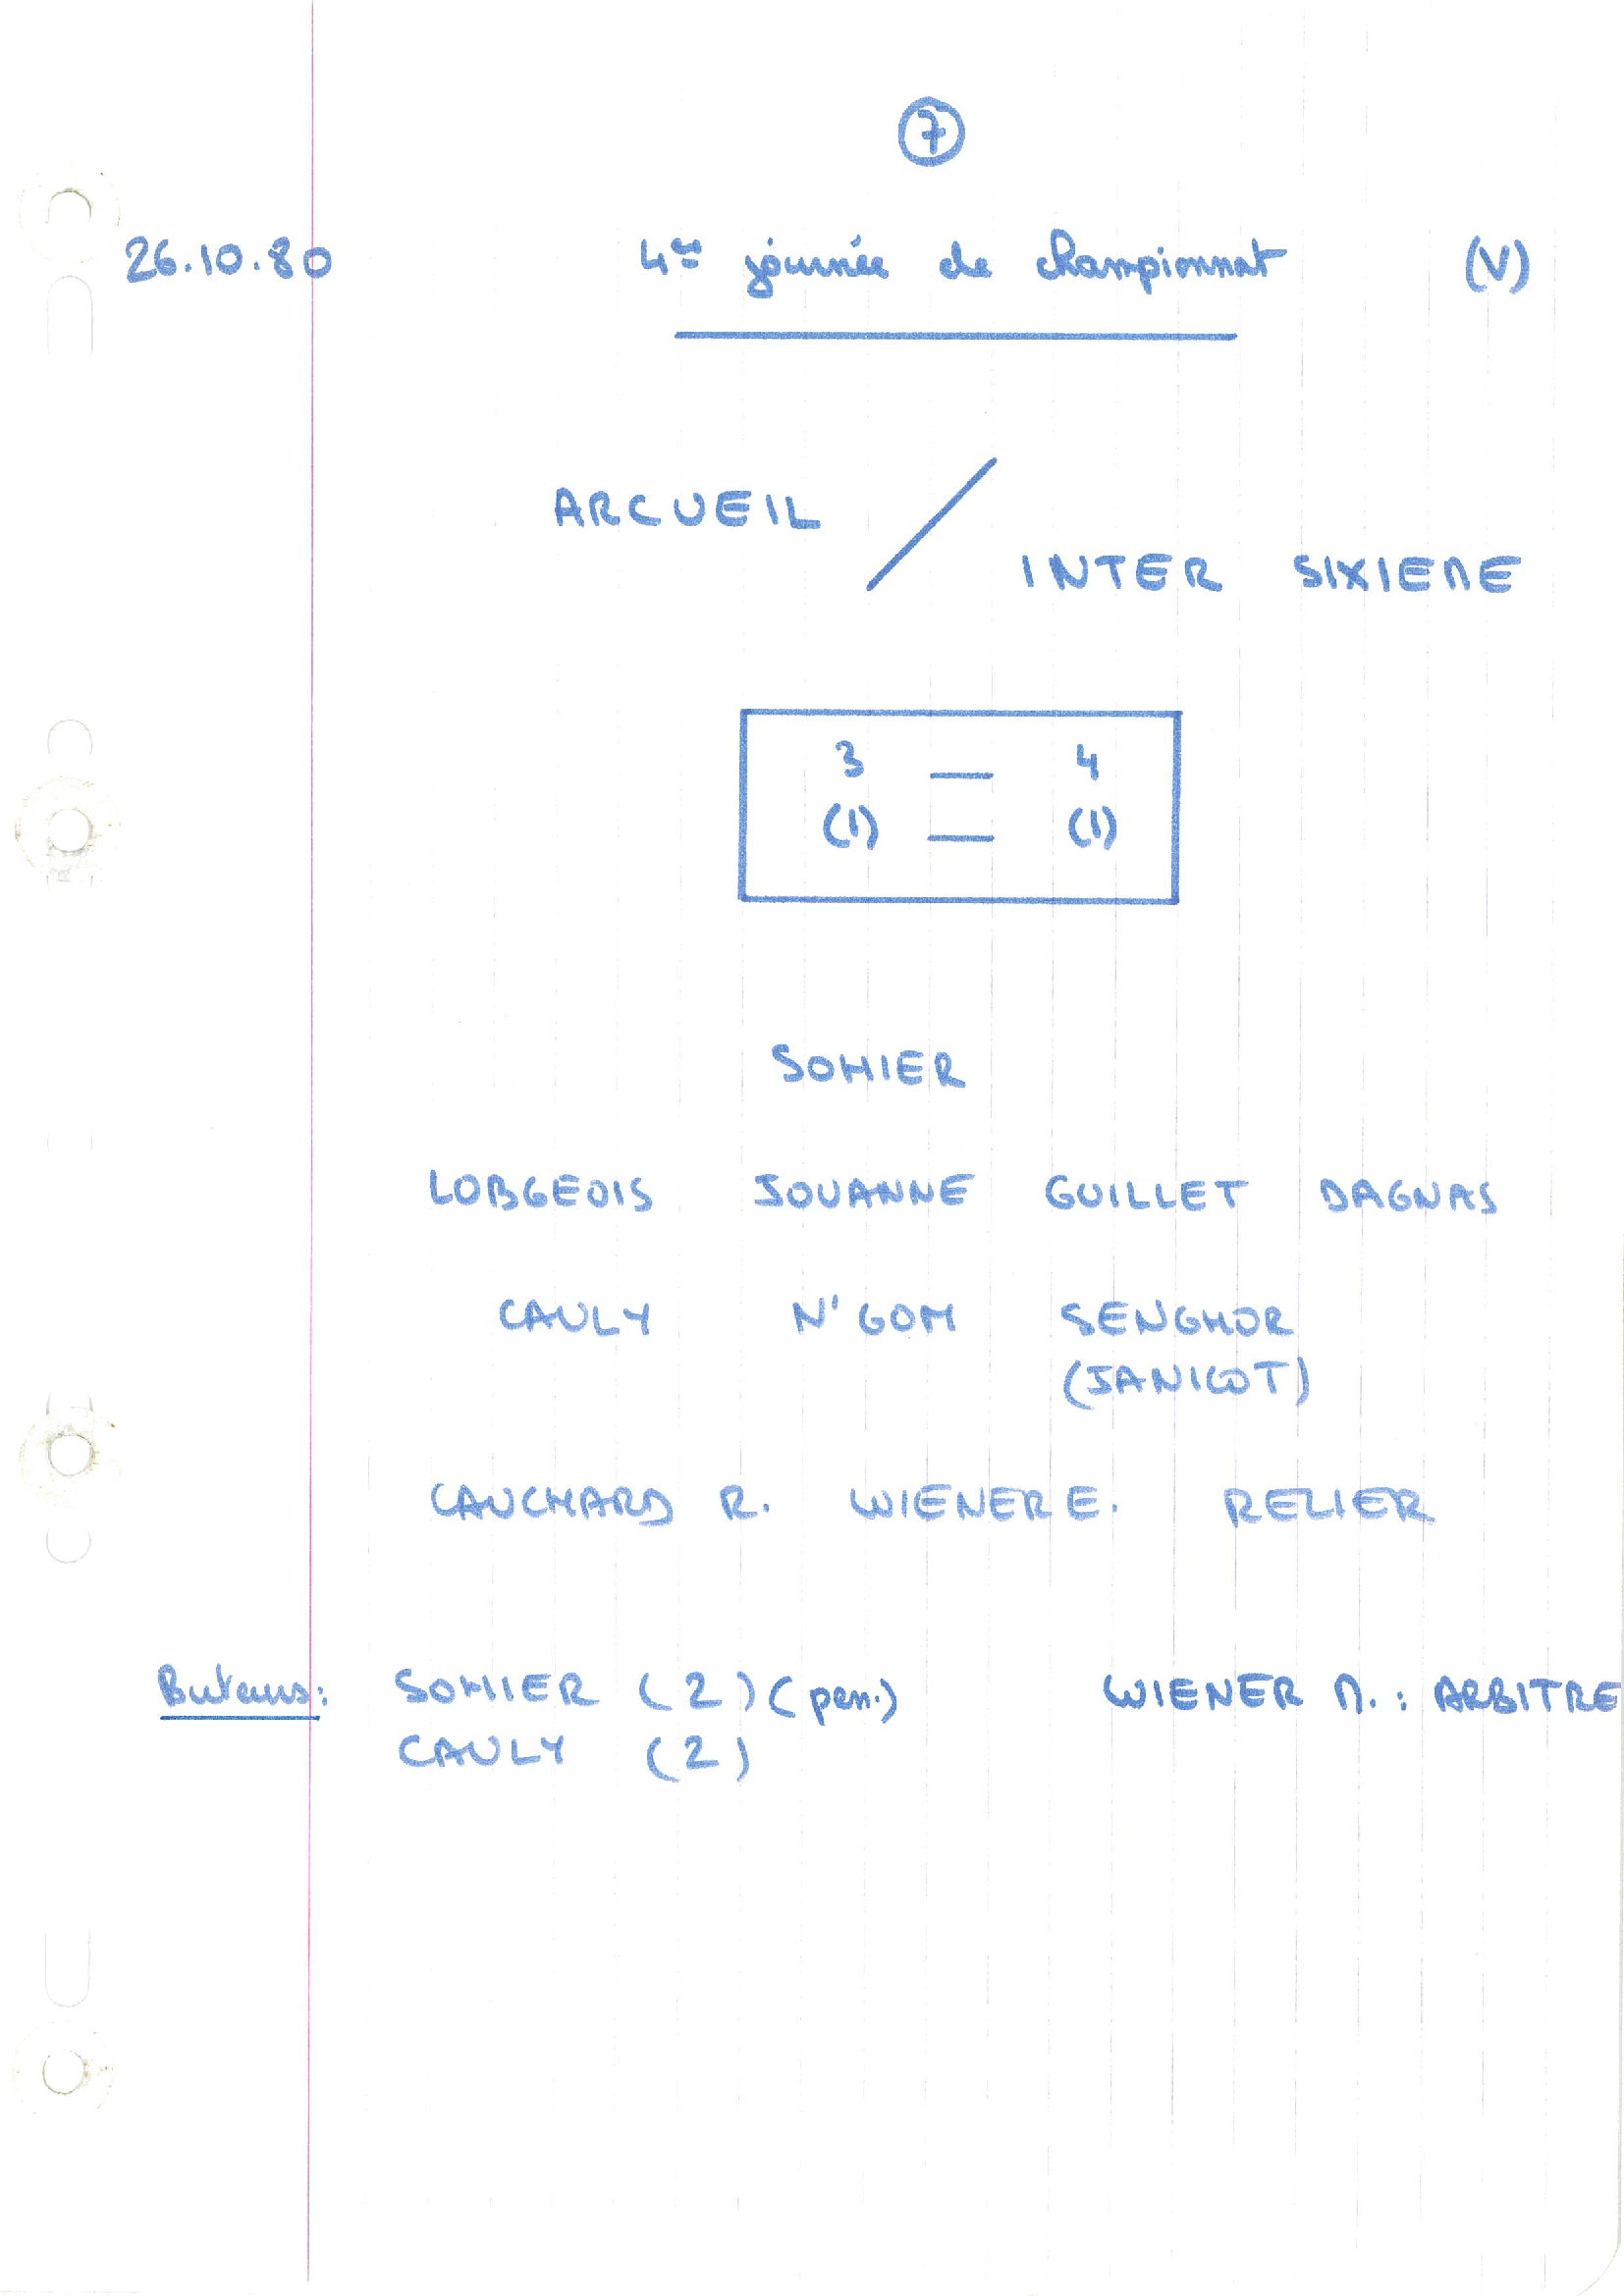 7
26.10.80 4ème journée de championnat (V)
ARCUEIL /
INTER SIXIEME
3 — 4
(1) — (1)
SOHIER
LOBGEOIS JOUANNE GUILLET DAGNAS
CAULY N'GOM SENGHOR
(JANICOT)
CAUCHARD R. WIENER E. RELIER
Buteurs: SOHIER (2) (pen.) WIENER M. : ARBITRE
CAULY (2)